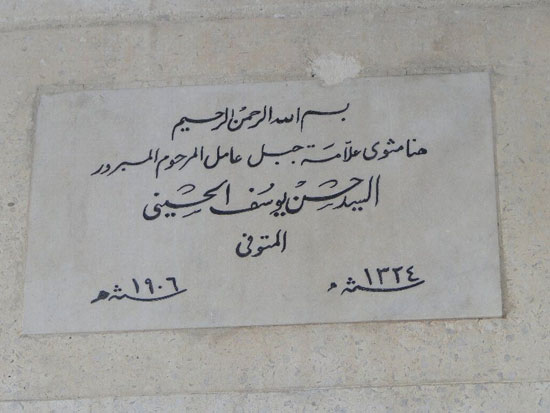 بسم الله الرحمن الرحيم
هنا مثوى علّامة جبل عامل المرحوم المبرور
السيد حسن يوسف الحسيني
المتوفى
سنة ١٣٢٤ ه سنة ١٩٠٦ ه